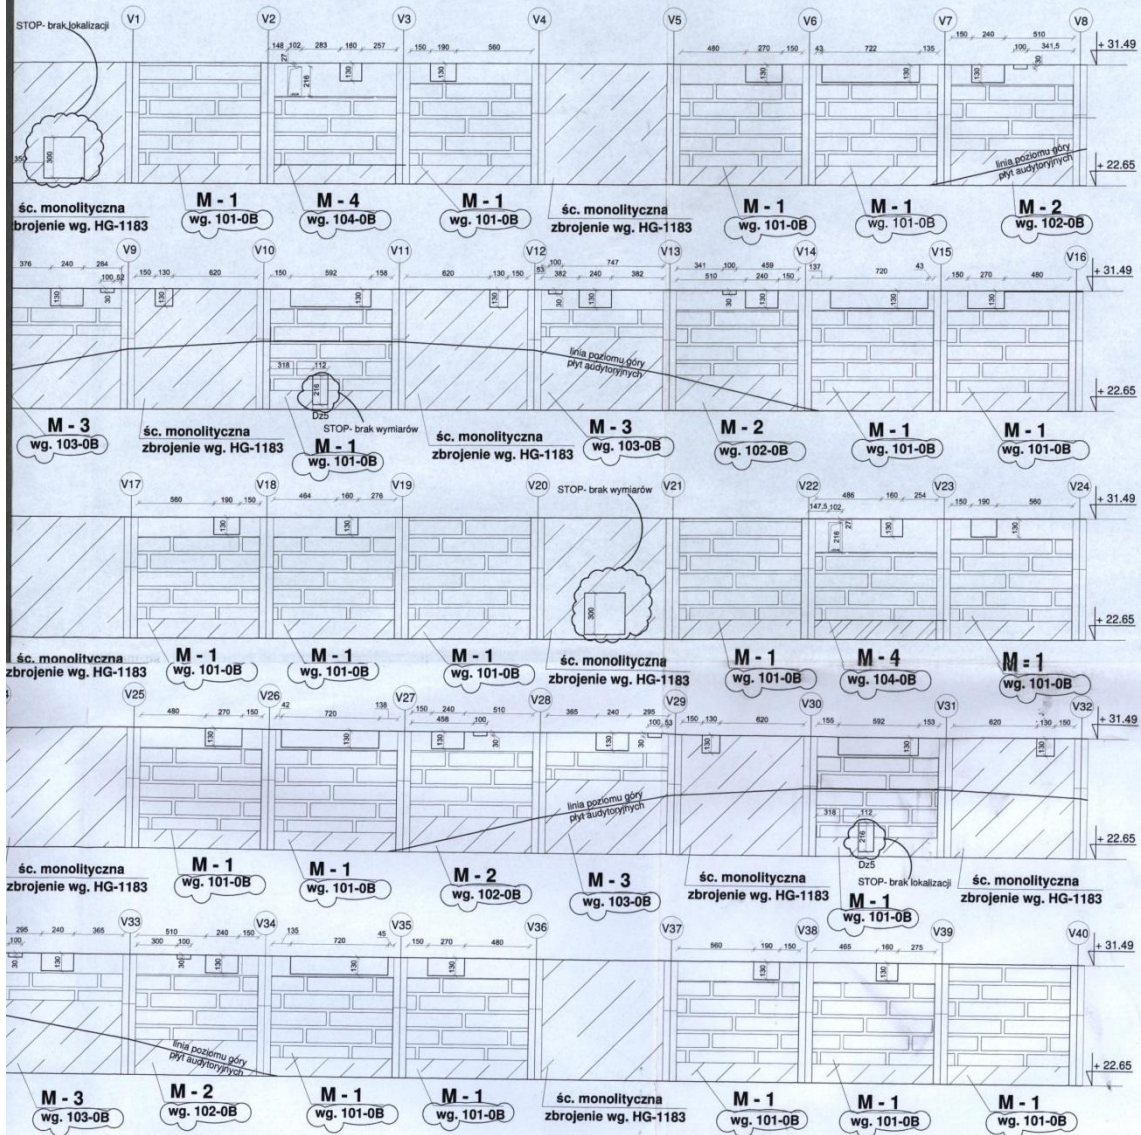 STOP- brak lokalizacji
V1 V2 V3 V4 V5 V6 V7 V8
148 102 283 160 257 150 190 560 480 270 150 43 722 135 150 240 510
100 341,5
27 216 130 130 130 130 130 30
+ 31.49
350 300
linia poziomu góry
płyt audytoryjnych
+ 22.65
śc. monolityczna
zbrojenie wg. HG-1183
M - 1
wg. 101-0B
M - 4
wg. 104-0B
M - 1
wg. 101-0B
śc. monolityczna
zbrojenie wg. HG-1183
M - 1
wg. 101-0B
M - 1
wg. 101-0B
M - 2
wg. 102-0B
V9 V10 V11 V12 V13 V14 V15 V16
376 240 264 150 130 620 150 592 158 620 130 150 100 747 341 100 459 137 720 43 150 270 480
100 52 53 382 240 382 510 240 150
130 30 130 130 130 30 130 30 130 130 130
+ 31.49
linia poziomu góry
płyt audytoryjnych
318 112
216
Dz5
STOP- brak wymiarów
+ 22.65
M - 3
wg. 103-0B
śc. monolityczna
zbrojenie wg. HG-1183
M - 1
wg. 101-0B
śc. monolityczna
zbrojenie wg. HG-1183
M - 3
wg. 103-0B
M - 2
wg. 102-0B
M - 1
wg. 101-0B
M - 1
wg. 101-0B
V17 V18 V19 V20 V21 V22 V23 V24
STOP- brak wymiarów
560 190 150 464 160 276 486 160 254 150 190 560
147,5 102
130 130 27 216 130 130
+ 31.49
300
+ 22.65
śc. monolityczna
zbrojenie wg. HG-1183
M - 1
wg. 101-0B
M - 1
wg. 101-0B
M - 1
wg. 101-0B
śc. monolityczna
zbrojenie wg. HG-1183
M - 1
wg. 101-0B
M - 4
wg. 104-0B
M - 1
wg. 101-0B
V25 V26 V27 V28 V29 V30 V31 V32
480 270 150 42 720 138 150 240 510 365 240 295 150 130 620 155 592 153 620 130 150
458 100 100 53
130 130 130 30 130 30 130 130 130
+ 31.49
linia poziomu góry
płyt audytoryjnych
318 112
216
Dz5
STOP- brak lokalizacji
+ 22.65
śc. monolityczna
zbrojenie wg. HG-1183
M - 1
wg. 101-0B
M - 1
wg. 101-0B
M - 2
wg. 102-0B
M - 3
wg. 103-0B
śc. monolityczna
zbrojenie wg. HG-1183
M - 1
wg. 101-0B
śc. monolityczna
zbrojenie wg. HG-1183
V33 V34 V35 V36 V37 V38 V39 V40
295 240 365 510 240 150 135 720 45 150 270 480 560 190 150 465 160 275
100 300 100
30 130 30 130 130 130 130 130
+ 31.49
linia poziomu góry
płyt audytoryjnych
+ 22.65
M - 3
wg. 103-0B
M - 2
wg. 102-0B
M - 1
wg. 101-0B
M - 1
wg. 101-0B
śc. monolityczna
zbrojenie wg. HG-1183
M - 1
wg. 101-0B
M - 1
wg. 101-0B
M - 1
wg. 101-0B